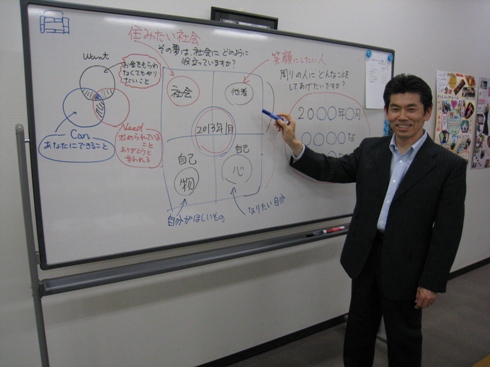 住みたい社会
その夢は、社会に どのように
役立っていますか?
笑顔にしたい人
周りの人に どんなことを
してあげたいですか?
Want
お金をもらわ
なくてもやり
たいこと
社会
他者
Can
あなたにできること
Need
求められている
こと
ありがとう
と言われる
2013年
自己
物
自己
心
自分がほしいもの
なりたい自分
20〇〇年〇月
〇〇〇〇な